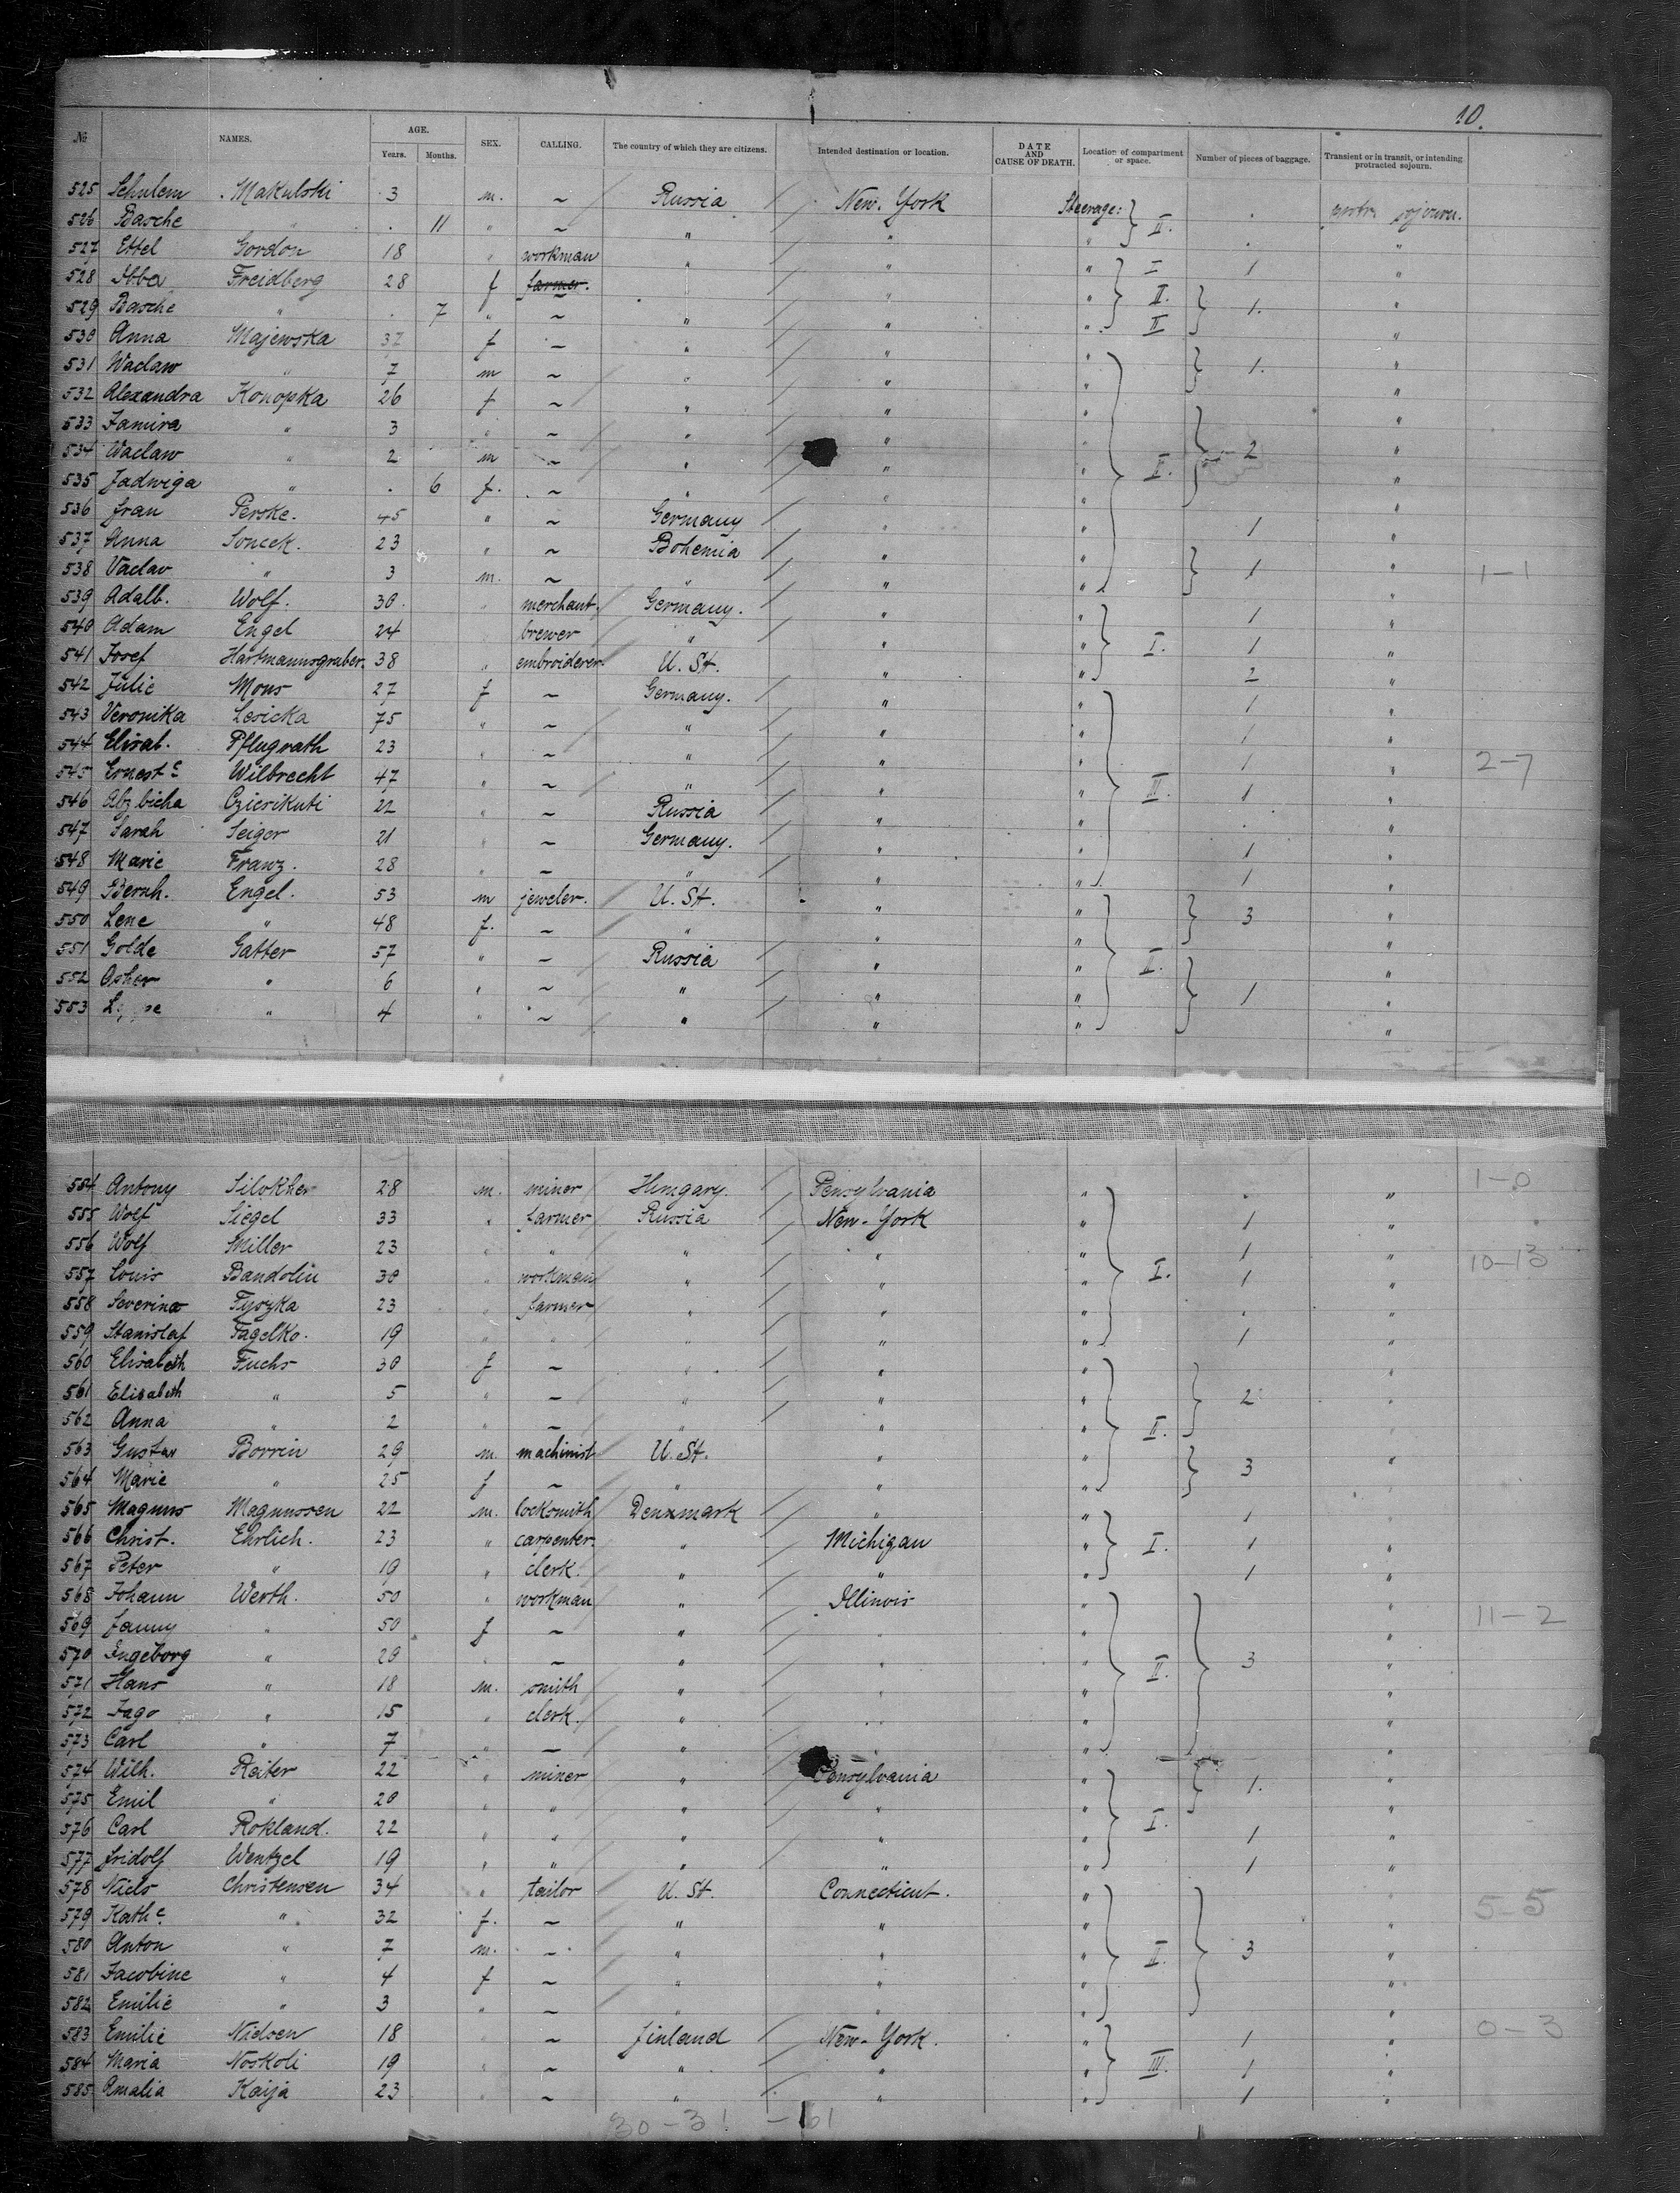 10.
№ NAMES. AGE. Years. Months. SEX. CALLING. The country of which they are citizens. Intended destination or location. DATE AND CAUSE OF DEATH. Location of compartment or space. Number of pieces of baggage. Transient or in transit, or intending protracted sojourn.
525 Schulem Makulski 3 m. ~ Russia New-York Steerage: II. protr. sojourn.
526 Basche " . 11 " ~ " " " . "
527 Ettel Gordon 18 " workman " " " I 1 "
528 Freidberg 28 f farmer. " " II. 1. "
529 Basche " . 7 " ~ " " " II "
530 Anna Majewska 37 f ~ " " " 1. "
531 Waclaw " 7 m ~ " " " "
532 Alexandra Konopka 26 f ~ " " " 2 "
533 Jamira " 3 " ~ " " " II. "
534 Waclaw " 2 m ~ " " " "
535 Jadwiga " . 6 f. ~ " " " "
536 Fran Perske. 45 " ~ Germany " " 1 "
537 Anna Soncek. 23 " ~ Bohemia " " 1 "
538 Vaclav " 3 m. ~ " " " " 1-1
539 Adalb. Wolf. 30. " merchant. Germany. " " 1 "
540 Adam Engel 24 brewer " " " I. 1 "
541 Josef Hartmannsgruber. 38 " embroiderer. U. St. " " 2 "
542 Julie Mons 27 f ~ Germany. " " 1 "
543 Veronika Lesicka 75 " ~ " " " 1 "
544 Elisab. Pflugrath 23 " ~ " " " 1 " 2-7
545 Ernest e Wilbrecht 47 " ~ " " " III. 1 "
546 Czierikuti 22 " ~ Russia " " . "
547 Sarah Seiger 21 " ~ Germany. " " 1 "
548 Marie Franz. 28 " ~ " " " 1 "
549 Bernh. Engel. 53 m jeweler. U. St. " " 3 "
550 Lene " 48 f. ~ " " " "
551 Golde Gatter 57 " ~ Russia " " II. "
552 Asher " 6 " ~ " " " 1 "
553 " 4 " ~ " " " "
554 Antony Silokher 28 m. miner Hungary. Pensylvania " . " 1-0
555 Wolf Siegel 33 " farmer Russia New-York " 1 "
556 Wolf Miller 23 " " " " " 1 " 10-13
557 Louis Bandolin 30 " workman " " " I. 1 "
558 Severina Fyszka 23 " farmer " " " . "
559 Stanislaf Fagelko. 19 " " " " " 1 "
560 Elisabeth Fuchs 30 f ~ " " " "
561 Elisabeth " 5 " ~ " " " 2 "
562 Anna " 2 " ~ " " " II. "
563 Gustav Borrin 29 m. machinist U. St. " " 3 "
564 Marie " 25 f ~ " " " "
565 Magnus Magnussen 22 m. locksmith Denmark " " 1 "
566 Christ. Ehrlich. 23 " carpenter. " Michigan " I. 1 "
567 Peter " 19 " clerk. " " " 1 "
568 Johann Werth. 50 " workman " Illinois " " 11-2
569 Fanny " 50 f ~ " " " "
570 Ingeborg " 20 " ~ " " " II. 3 "
571 Hans " 18 m. smith " " " "
572 Jago " 15 " clerk. " " " "
573 Carl " 7 " ~ " " " "
574 Wilh. Reiter 22 " miner " Pensylvania " 1. "
575 Emil " 20 " " " " " "
576 Carl Rokland. 22 " " " " " I. 1 "
577 Fridolf Wentzel 19 " " " " " 1 "
578 Niels Christensen 34 " tailor U. St. Connecticut. " " 5-5
579 Kath e. " 32 f. ~ " " " "
580 Anton " 7 m. ~ " " " II. 3 "
581 Jacobine " 4 f ~ " " " "
582 Emilie " 3 " ~ " " " "
583 Emilie Nielsen 18 " ~ Finland New-York. " 1 " 0-3
584 Maria Noskoli 19 " ~ " " " III. 1 "
585 Amalia Kaija 23 " ~ " " " 1 "
30-31 -61